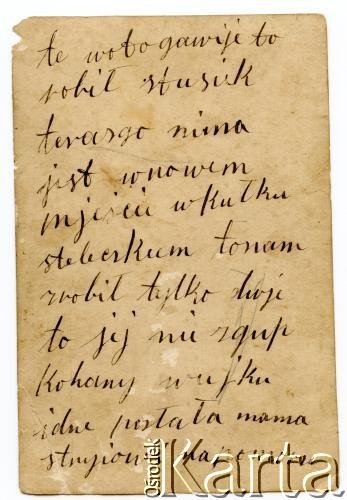 te wotogawije to
robił stusik
terasgo nima
jest wnowem
mjeście wkułku
steberskiem tonam
zrobił tylko dwje
to jij nie zgup
Kohany wujku
idne postała mama
stryjowi
ośrodek
Karta